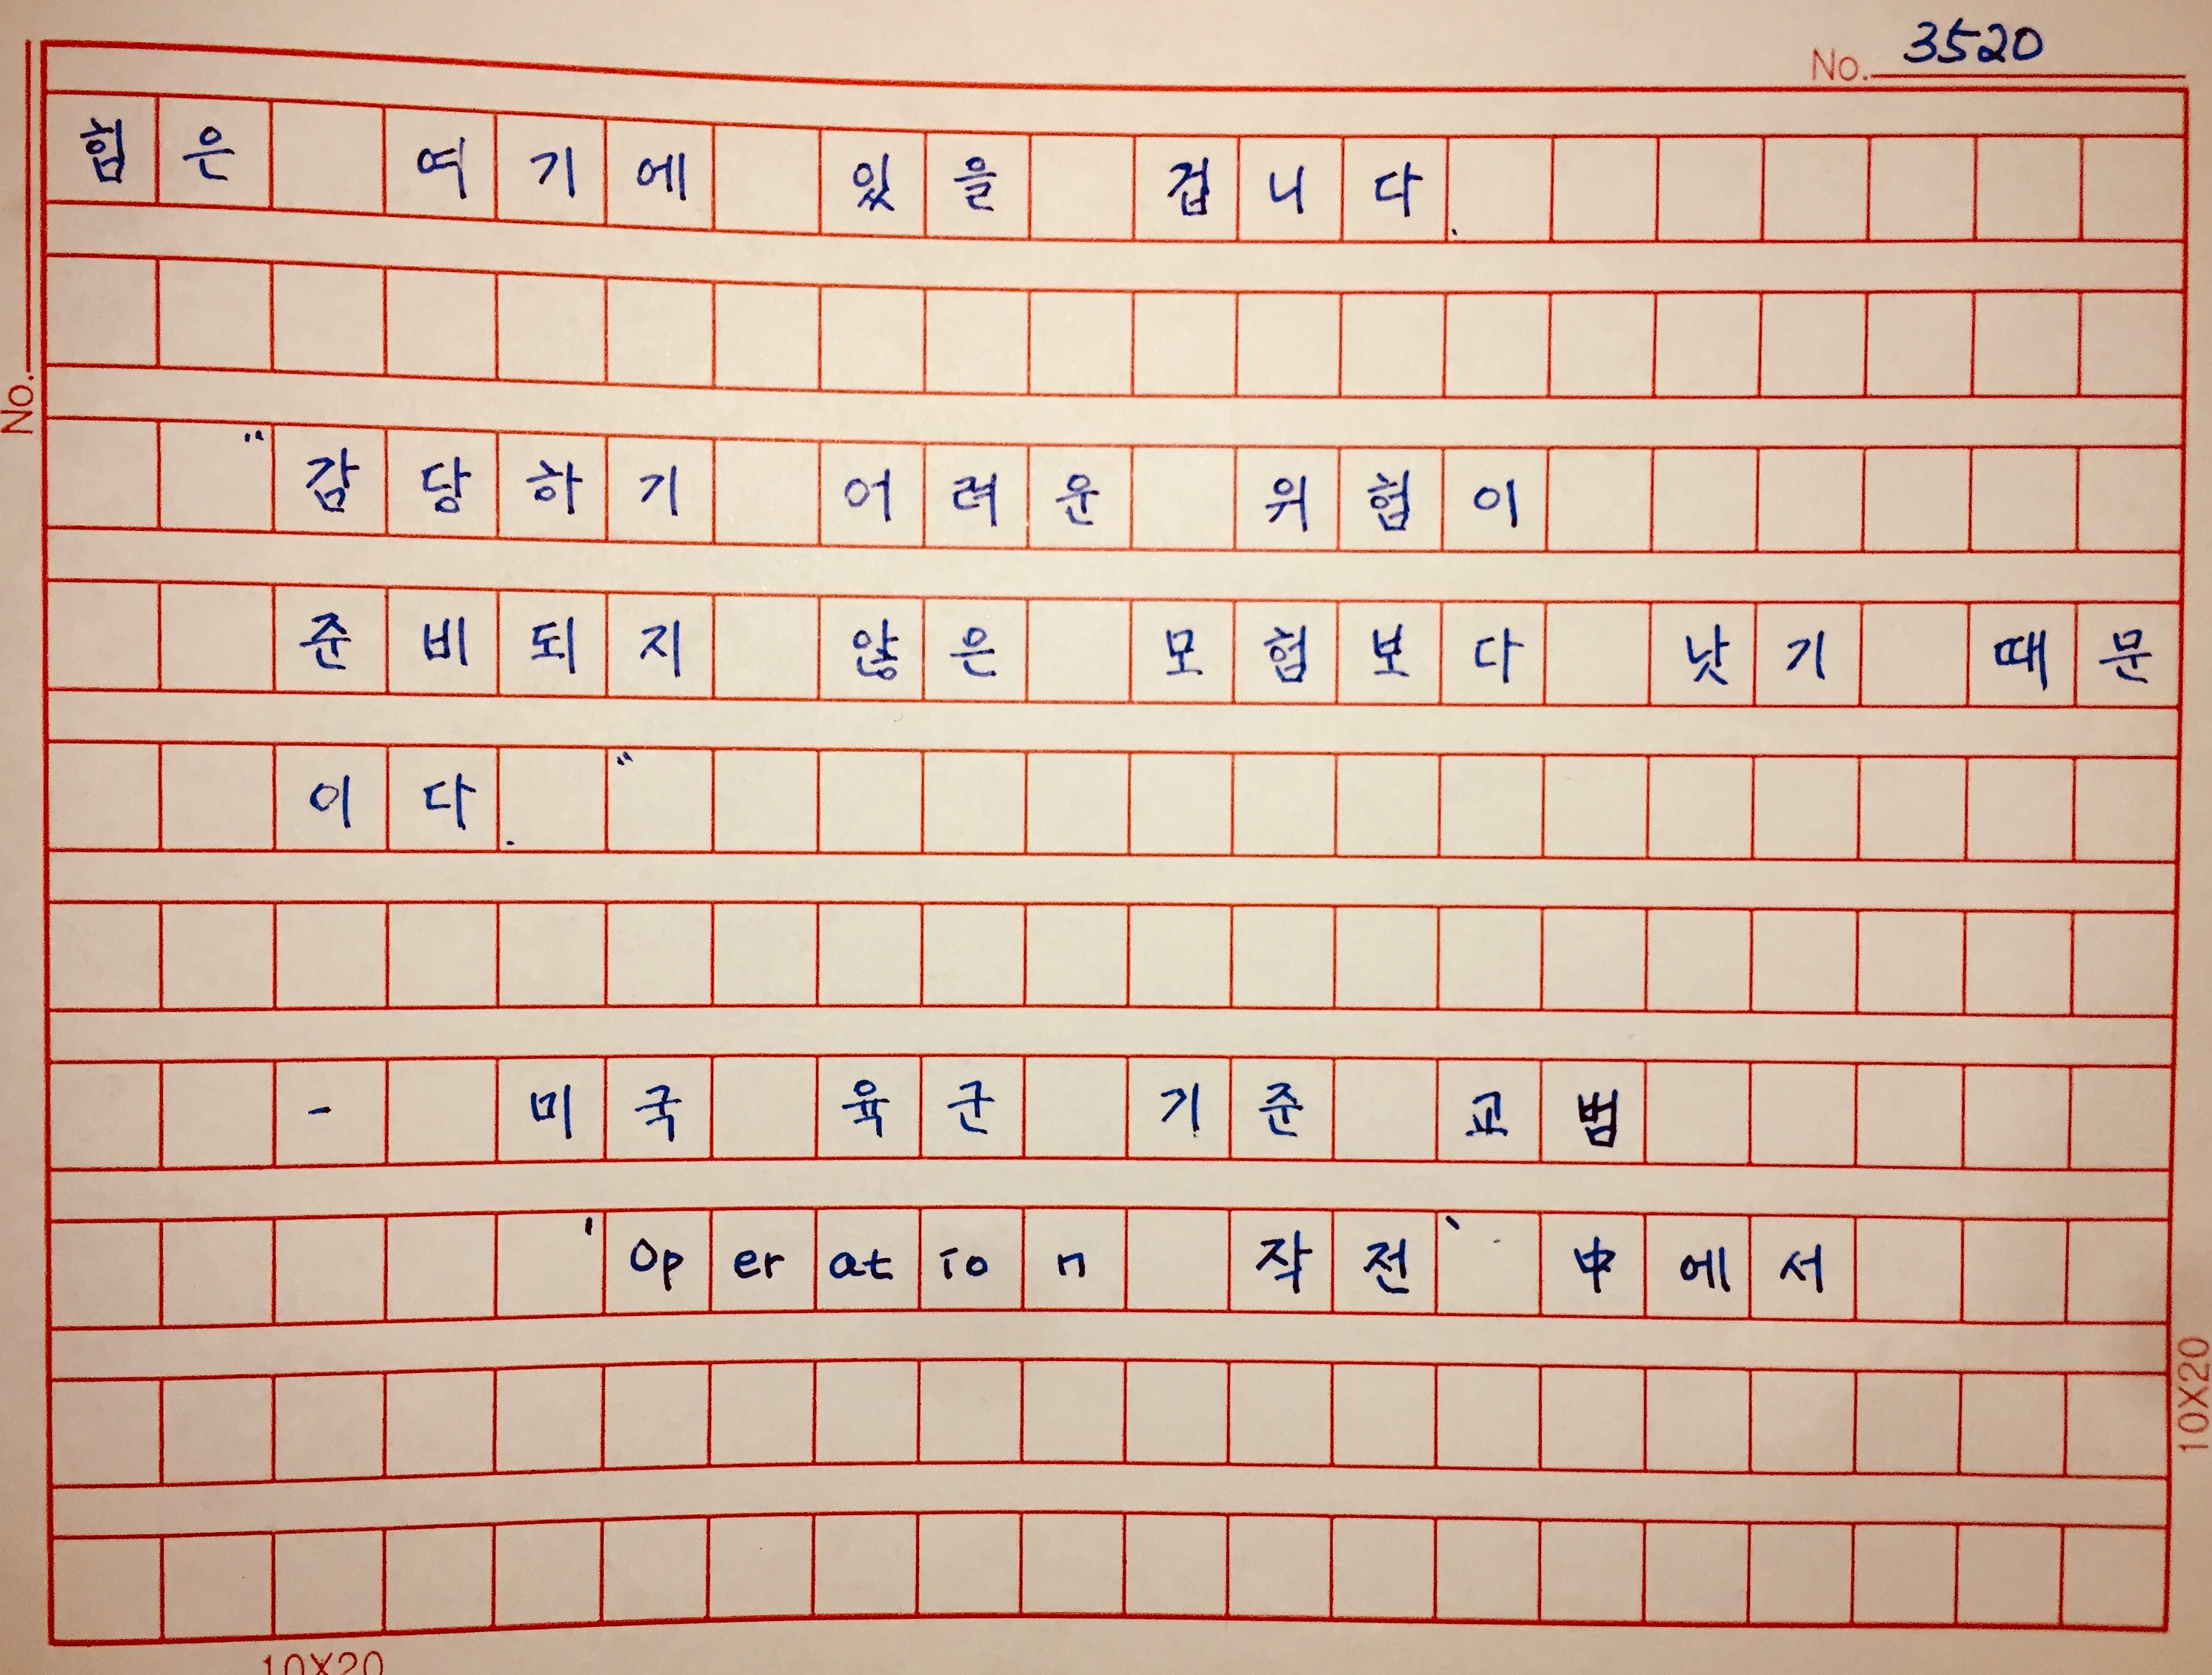 No. 3520
험은 여기에 있을 겁니다.
"감당하기 어려운 위험이
준비되지 않은 모험보다 낫기 때문
이다."
- 미국 육군 기준 교범
'Operation 작전' 中에서
No.
10X20
10X20